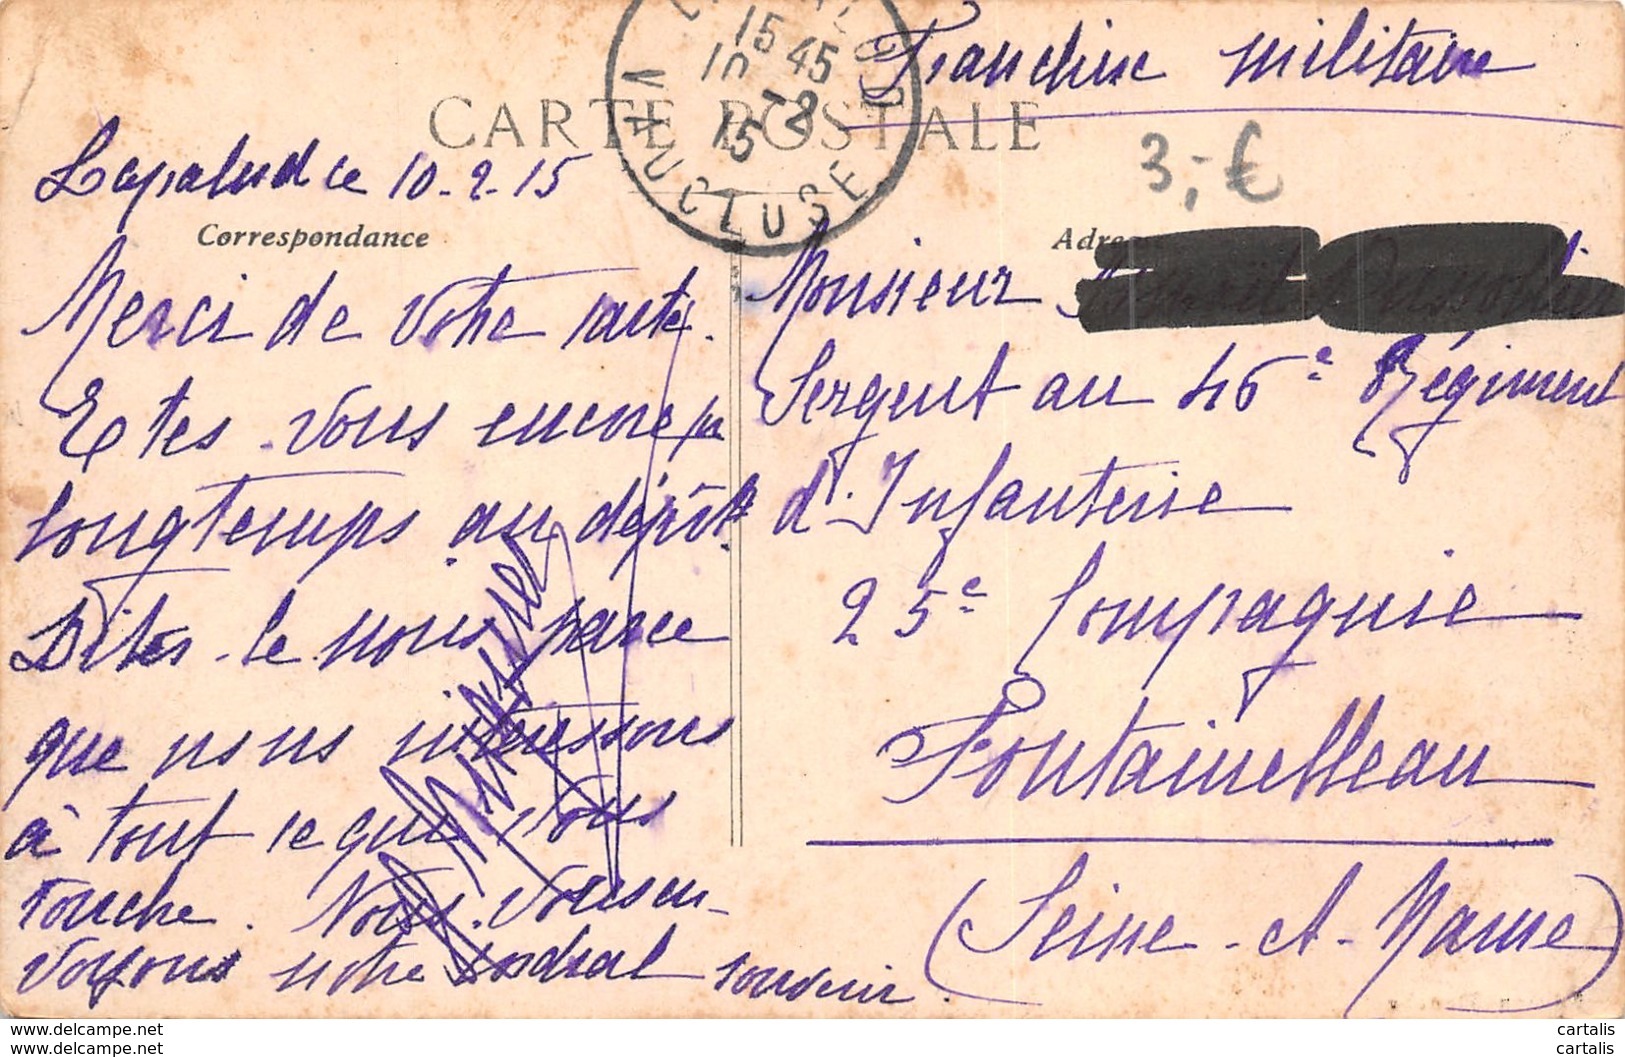 Franchise militaire
CARTE POSTALE
15 45
10 - 2
15
VAUCLUSE
3,-€
Lapalud ce 10-2-15
Correspondance
Merci de votre carte.
Etes-vous encore pr
longtemps au dépôt
Dites-le nous parce
que nous intéressons
à tout ce que vous
touche. Nous vous en-
voyons notre cordial souvenir.
Monsieur
Sergent au 46e Régiment
d'Infanterie
25e Compagnie
Fontainebleau
(Seine-et-Marne)
cartalis.net delcampe.net
cartalis.net delcampe.net
cartalis
cartalis